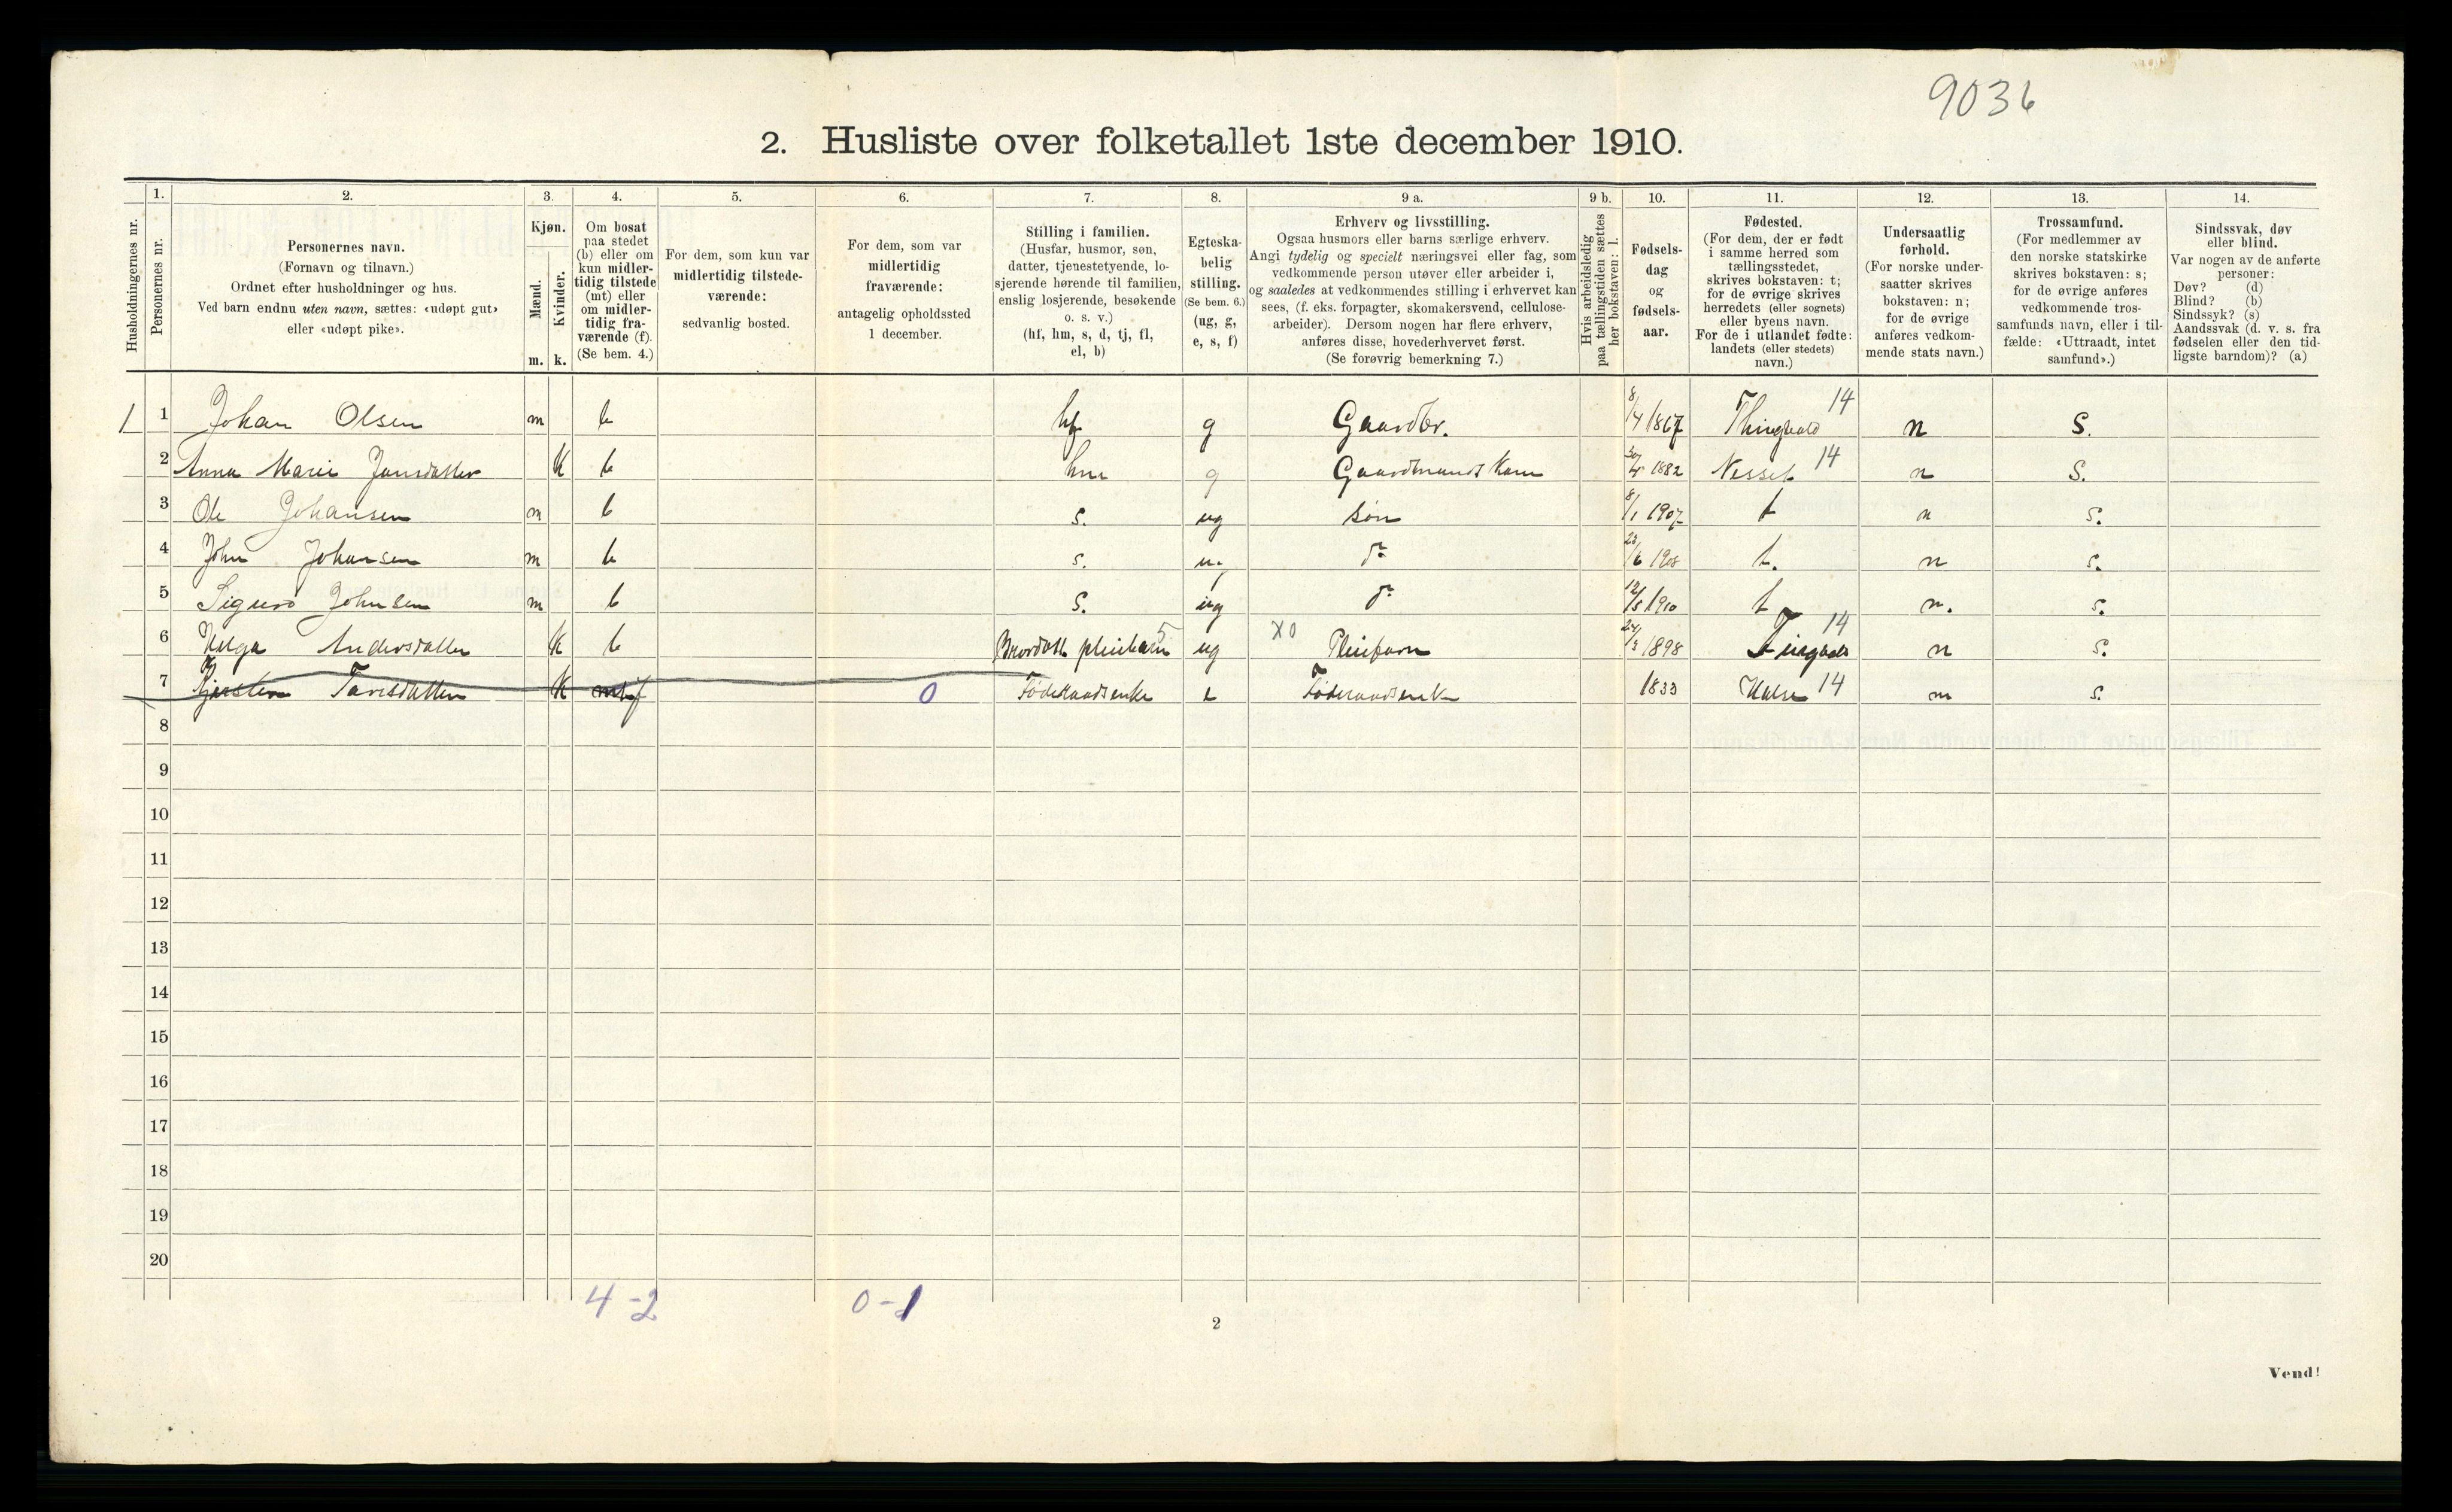 9036
2. Husliste over folketallet 1ste december 1910.
Husholdningernes nr.
1.
Personernes nr.
2.
Personernes navn.
(Fornavn og tilnavn.)
Ordnet efter husholdninger og hus.
Ved barn endnu uten navn, sættes: «udøpt gut»
eller «udøpt pike».
3.
Kjøn.
Mænd.
m.
Kvinder.
k.
4.
Om bosat
paa stedet
(b) eller om
kun midler-
tidig tilstede
(mt) eller
om midler-
tidig fra-
værende (f).
(Se bem. 4.)
5.
For dem, som kun var
midlertidig tilstede-
værende:
sedvanlig bosted.
6.
For dem, som var
midlertidig
fraværende:
antagelig opholdssted
1 december.
7.
Stilling i familien.
(Husfar, husmor, søn,
datter, tjenestetyende, lo-
sjerende hørende til familien,
enslig losjerende, besøkende
o. s. v.)
(hf, hm, s, d, tj, fl,
el, b)
8.
Egteska-
belig
stilling.
(Se bem. 6.)
(ug, g,
e, s, f)
9 a.
Erhverv og livsstilling.
Ogsaa husmors eller barns særlige erhverv.
Angi tydelig og specielt næringsvei eller fag, som
vedkommende person utøver eller arbeider i,
og saaledes at vedkommendes stilling i erhvervet kan
sees, (f. eks. forpagter, skomakersvend, cellulose-
arbeider). Dersom nogen har flere erhverv,
anføres disse, hovederhvervet først.
(Se forøvrig bemerkning 7.)
9 b.
Hvis arbeidsledig
paa tællingstiden sættes
her bokstaven: l.
10.
Fødsels-
dag
og
fødsels-
aar.
11.
Fødested.
(For dem, der er født
i samme herred som
tællingsstedet,
skrives bokstaven: t;
for de øvrige skrives
herredets (eller sognets)
eller byens navn.
For de i utlandet fødte:
landets (eller stedets)
navn.)
12.
Undersaatlig
forhold.
(For norske under-
saatter skrives
bokstaven: n;
for de øvrige
anføres vedkom-
mende stats navn.)
13.
Trossamfund.
(For medlemmer av
den norske statskirke
skrives bokstaven: s;
for de øvrige anføres
vedkommende tros-
samfunds navn, eller i til-
fælde: «Uttraadt, intet
samfund».)
14.
Sindssvak, døv
eller blind.
Var nogen av de anførte
personer:
Døv? (d)
Blind? (b)
Sindssyk? (s)
Aandssvak (d. v. s. fra
fødselen eller den tid-
ligste barndom)? (a)
1 1 Johan Olsen m b hf g Gaardbr. 8/4 1867 Thingvold 14 n S.
2 Anna Marie Jonsdatter K b hm g Gaardmands Kone 30/ 1882 Nesset 14 n S.
3 Ole Johansen m b s. ug Søn 8/1 1907 t n S.
4 John Johansen m b s. ug do 23/6 1908 t. n S.
5 Sigurd Johnsen m b S. ug do 12/5 1910 t n. S.
6 Helga Andersdatter K b Brordatt pleiebarn 5 ug X0 Pleiebarn 24/3 1898 Tingvold 14 n S.
7 Kjersten Taresdatter K f 0 Føderaadsenke e Føderaadsenke 1833 Halse 14 n S.
8
9
10
11
12
13
14
15
16
17
18
19
20
4 - 2 0 - 1
2
Vend!